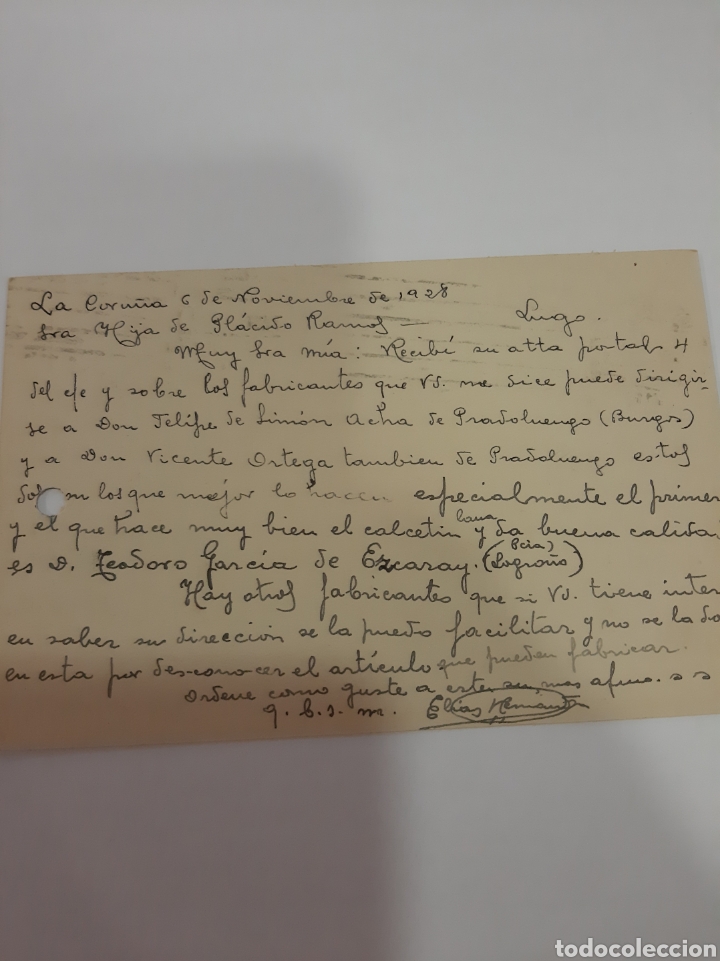 La Coruña 6 de Noviembre de 1928
Sra Hija de Plácido Ramos — Lugo.
Muy Sra mía: Recibí su atta postal 4
del cje y sobre los fabricantes que Vd. me dice puede dirigir-
se a Don Felipe de Simón Acha de Pradoluengo (Burgos)
y a Don Vicente Ortega tambien de Pradoluengo estos
dos son los que mejor lo hacen especialmente el primer
y el que hace muy bien el calcetin lana y da buena calida
es D. Teodoro García de Ezcaray. (Pcia) (Logroño)
Hay otros fabricantes que si Vd. tiene inter
en saber su dirección se la puedo facilitar y no se la do
en esta por desconocer el artículo que pueden fabricar.
Ordene como guste a este su mas afmo. s s
q. b. s. m. Elias
todocoleccion